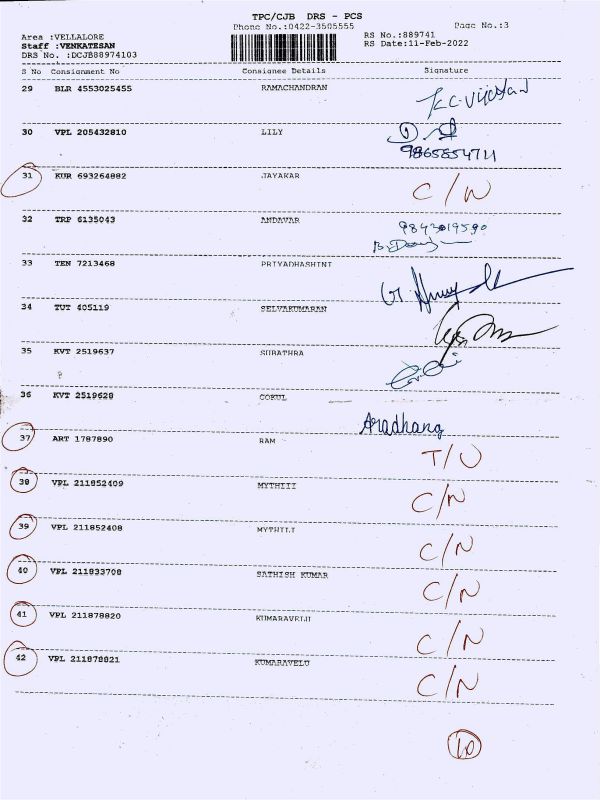 TPC/CJB DRS - PCS
Phone No.:0422-3505555 Page No.:3
Area :VELLALORE RS No.:889741
Staff :VENKATESAN RS Date:11-Feb-2022
DRS No. :DCJB88974103
S No Consignment No Consignee Details Signature
29 BLR 4553025455 RAMACHANDRAN
30 VPL 205432810 LILY
9865854711
31 KUR 693264882 JAYAKAR C/N
32 TRP 6135043 ANDAVAR 9843019590
33 TEN 7213468 PRIYADHASHINI
34 TUT 405119 SELVAKUMARAN
35 KVT 2519637 SUBATHRA
36 KVT 2519628 GOKUL
Aradhana
37 ART 1787890 RAM T/U
38 VPL 211852409 MYTHILI C/N
39 VPL 211852408 MYTHILI C/N
40 VPL 211833708 SATHISH KUMAR C/N
41 VPL 211878820 KUMARAVELU C/N
42 VPL 211878821 KUMARAVELU C/N
10